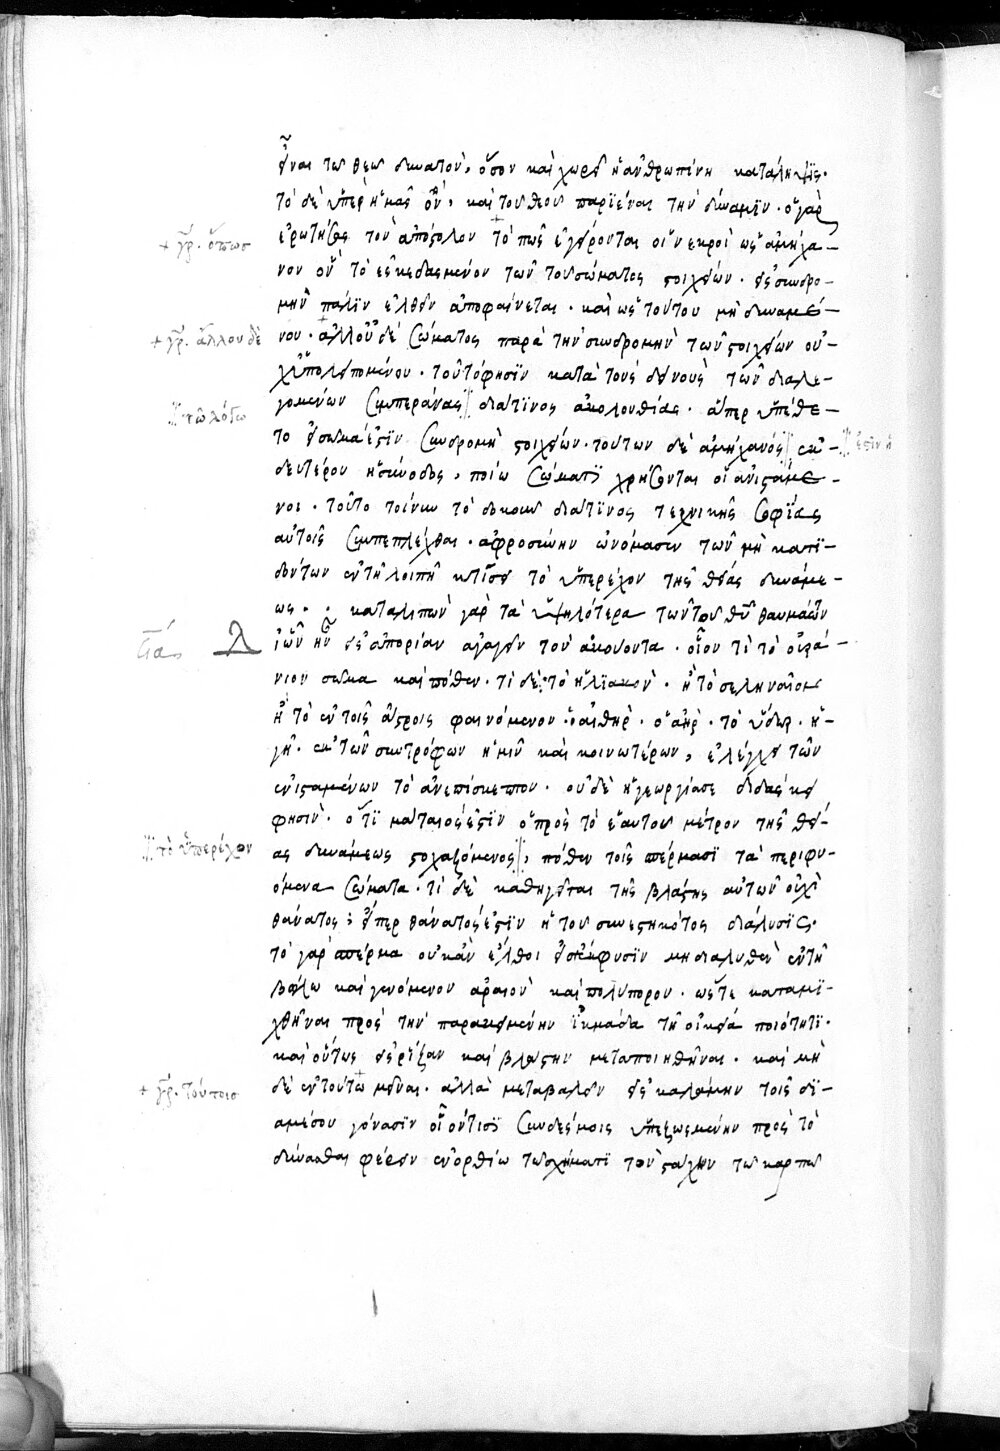 εἶναι τῷ θεῷ δυνατὸν, ὅσον καὶ χωρεῖ ἡ ἀνθρωπίνη κατάληψις·
τὸ δὲ ὑπὲρ ἡμᾶς οὖν, καὶ τοῦ θεοῦ παριέναι τὴν δύναμιν· ὁ γὰρ
+ γρ. ὅπως
ἐρωτήσας τὸν ἀπόστολον τὸ πῶς ἐγείρονται οἱ νεκροὶ ὡς ἀμήχα–
νον ὂν τὸ ἐσκεδασμένον τῶν τοῦ σώματος στοιχείων· εἰς συνδρο–
μὴν πάλιν ἐλθεῖν ἀποφαίνεται· καὶ ὡς τούτου μὴ δυναμέ–
+ γρ. ἄλλου δὲ
νου· ἀλλ' οὐδὲ σώματος παρὰ τὴν συνδρομὴν τῶν στοιχείων οὐ–
χ ὑπολειπομένου· τοῦτό φησιν κατὰ τοὺς δεινοὺς τῶν διαλε–
τῷ λόγῳ
γομένων συμπεράνας διά τινος ἀκολουθίας· ἅπερ ὑπέθε–
ἐστὶν ἡ
το εἰ σῶμά ἐστιν συνδρομὴ στοιχείων· τούτων δὲ ἀμήχανος ἐκ
δευτέρου ἡ σύνοδος, ποίῳ σώματι χρήσονται οἱ ἀνιστάμε–
νοι· τοῦτο τοίνυν τὸ δοκοῦν διά τινος τεχνικῆς σοφίας
αὐτοῖς συμπεπλέχθαι· ἀφροσύνην ὠνόμασεν τῶν μὴ κατι–
δόντων ἐν τῇ λοιπῇ κτίσει τὸ ὑπερέχον τῆς θείας δυνάμε–
ως· · καταλιπὼν γὰρ τὰ ὑψηλότερα τῶν τοῦ θεοῦ θαυμάτων
δι' ὧν ἦν εἰς ἀπορίαν ἀγαγεῖν τὸν ἀκούοντα· οἷον τί τὸ οὐρά–
νιον σῶμα καὶ πόθεν· τί δὲ τὸ ἡλιακὸν· ἢ τὸ σεληναῖον
ἢ τὸ ἐν τοῖς ἄστροις φαινόμενον· ὁ αἰθὴρ· ὁ ἀὴρ· τὸ ὕδωρ· ἡ–
γῆ· ἐκ τῶν συντρόφων ἡμῖν καὶ κοινωτέρων, ἐλέγχει τῶν
ἐνισταμένων τὸ ἀνεπίσκεπτον· οὐδὲ ἡ γεωργία σε διδάσκει
φησὶν· ὅτι μάταιός ἐστιν ὁ πρὸς τὸ ἑαυτοῦ μέτρον τῆς θεί–
τὸ ὑπερέχον
ας δυνάμεως στοχαζόμενος, πόθεν τοῖς σπέρμασι τὰ περιφυ–
όμενα σώματα· τί δὲ καθηγεῖται τῆς βλάστης αὐτῶν οὐχὶ
θάνατος; εἴπερ θάνατός ἐστιν ἡ τοῦ συνεστηκότος διάλυσις·
τὸ γὰρ σπέρμα οὐκ ἂν ἔλθοι εἰς ἔκφυσιν μὴ διαλυθὲν ἐν τῇ
βώλῳ καὶ γενόμενον ἀραιὸν καὶ πολύπορον· ὥστε καταμι–
χθῆναι πρὸς τὴν παρακειμένην ἰκμάδα τῇ οἰκείᾳ ποιότητι·
καὶ οὕτως εἰς ῥίζαν καὶ βλάστην μεταποιηθῆναι· καὶ μὴ
+ γρ. τούτοις
δὲ ἐν τούτῳ μεῖναι· ἀλλὰ μεταβαλεῖν εἰς καλάμην τοῖς δι–
αμέσου γόνασιν οἱονεί τισι συνδέσμοις ὑπεζωσμένην πρὸς τὸ
δύνασθαι φέρειν ἐν ὀρθίῳ τῷ σχήματι τὸν στάχυν τῷ καρπῷ